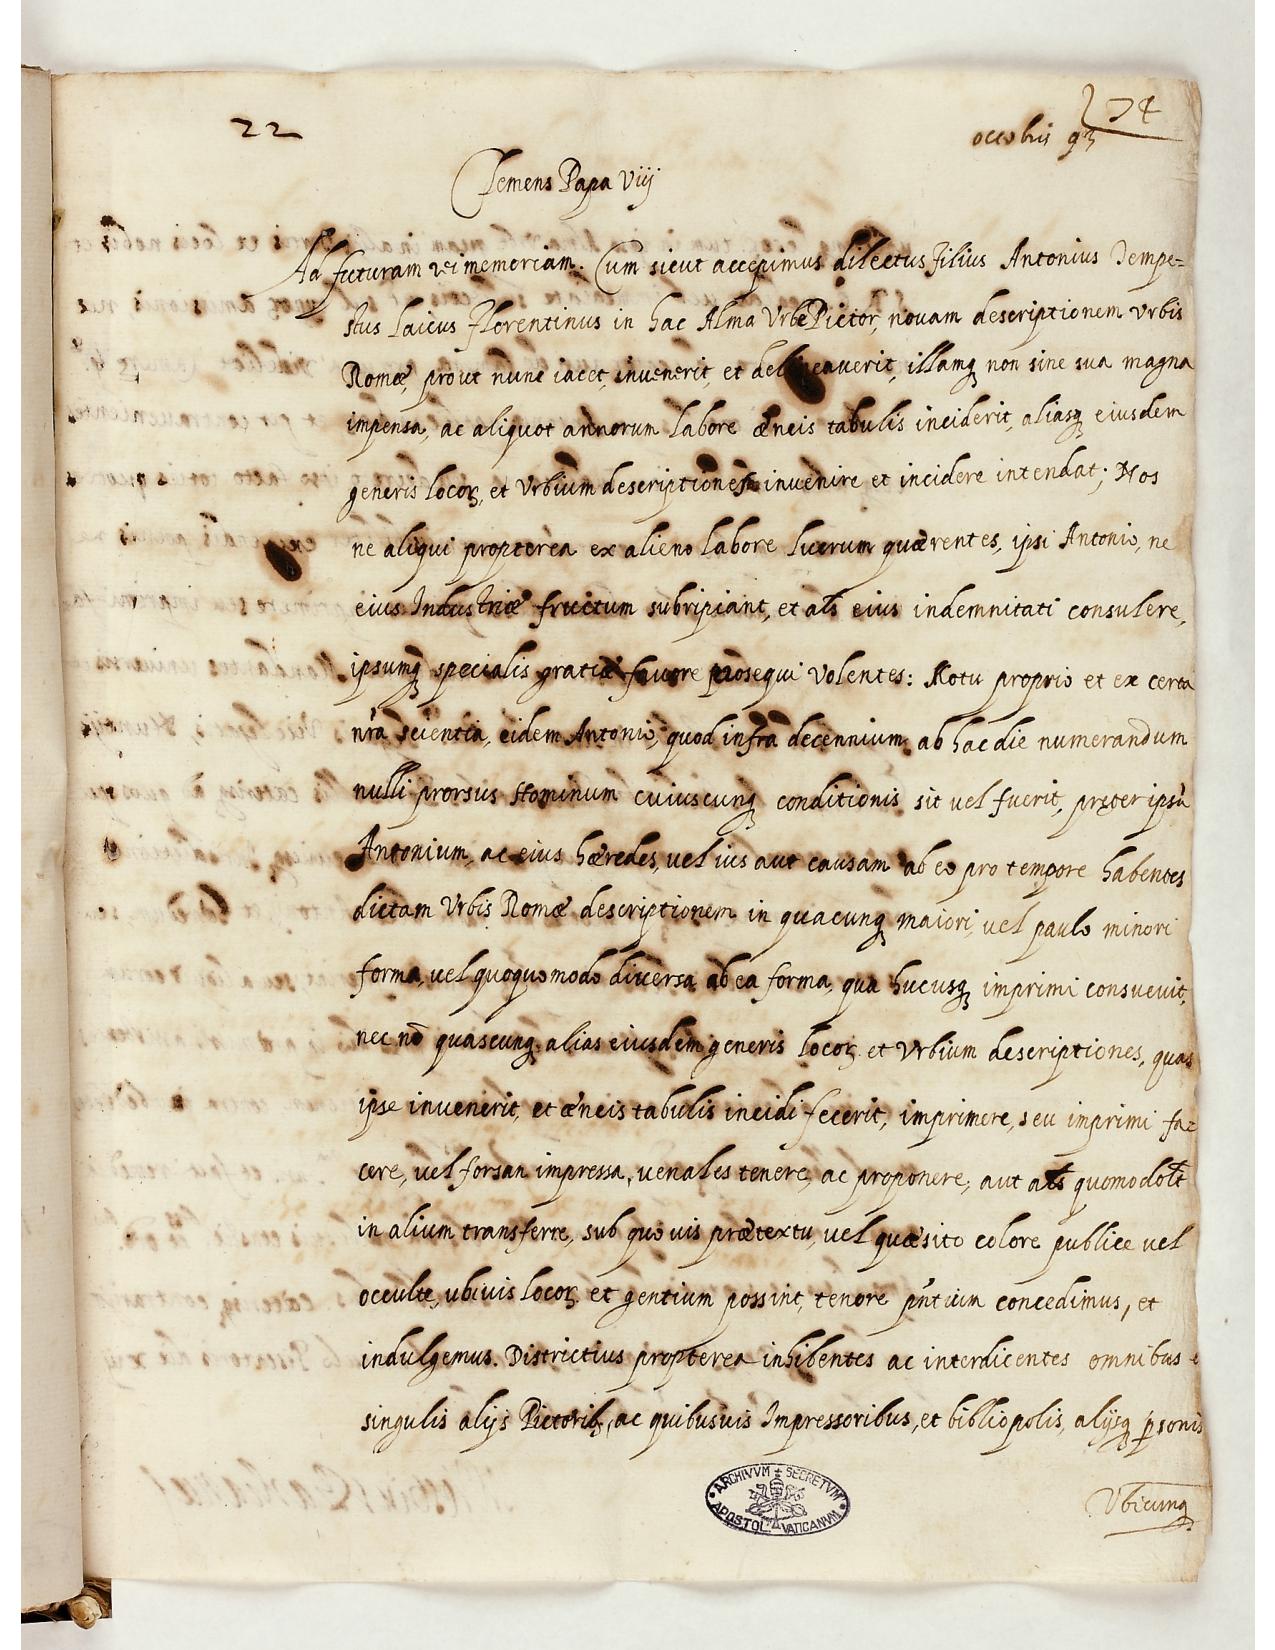 22
274
octobris 93
Clemens Papa Viij
Ad futuram rei memoriam. Cum sicut accepimus dilectus filius Antonius Tempe=
stus laicus florentinus in hac Alma Urbe Pictor, novam descriptionem Urbis
Romæ, prout nunc iacet, invenerit, et delineaverit, illamq₃ non sine sua magna
impensa, ac aliquot annorum labore æneis tabulis inciderit, aliasq₃ eiusdem
generis locoꝝ, et Urbium descriptiones invenire et incidere intendat; Nos
ne aliqui propterea ex alieno labore lucrum quærentes, ipsi Antonio, ne
eius Industriæ fructum subripiant, et als eius indemnitati consulere,
ipsumq₃ specialis gratiæ favore prosequi volentes: Motu proprio et ex certa
nr̃a scientia, eidem Antonio, quod infra decennium ab hac die numerandum
nulli prorsus Hominum cuiuscunq₃ conditionis sit vel fuerit, præter ipsũ
Antonium, ac eius hæredes, vel ius aut causam ab eo pro tempore habentes
dictam Urbis Romæ descriptionem in quacunq₃ maiori, vel paulo minori
forma, vel quoquomodo diversa ab ea forma, qua hucusq₃ imprimi consuevit,
nec nõ quascunq₃ alias eiusdem generis locoꝝ et Urbium descriptiones, quas
ipse invenerit, et æneis tabulis incidi fecerit, imprimere, seu imprimi fa=
cere, vel forsan impressa, venales tenere, ac proponere, aut als quomodolt
in alium transferre, sub quovis prætextu, vel quæsito colore publice vel
occulte, ubivis locoꝝ et gentium possint, tenore pñtium concedimus, et
indulgemus. Districtius propterea inhibentes ac interdicentes omnibus e
singulis alijs Pictorib₃, ac quibusvis Impressoribus, et bibliopolis, alijsq₃ ꝑsonis
ARCHIVVM SECRETVM APOSTOL. VATICANVM
Ubicunq₃